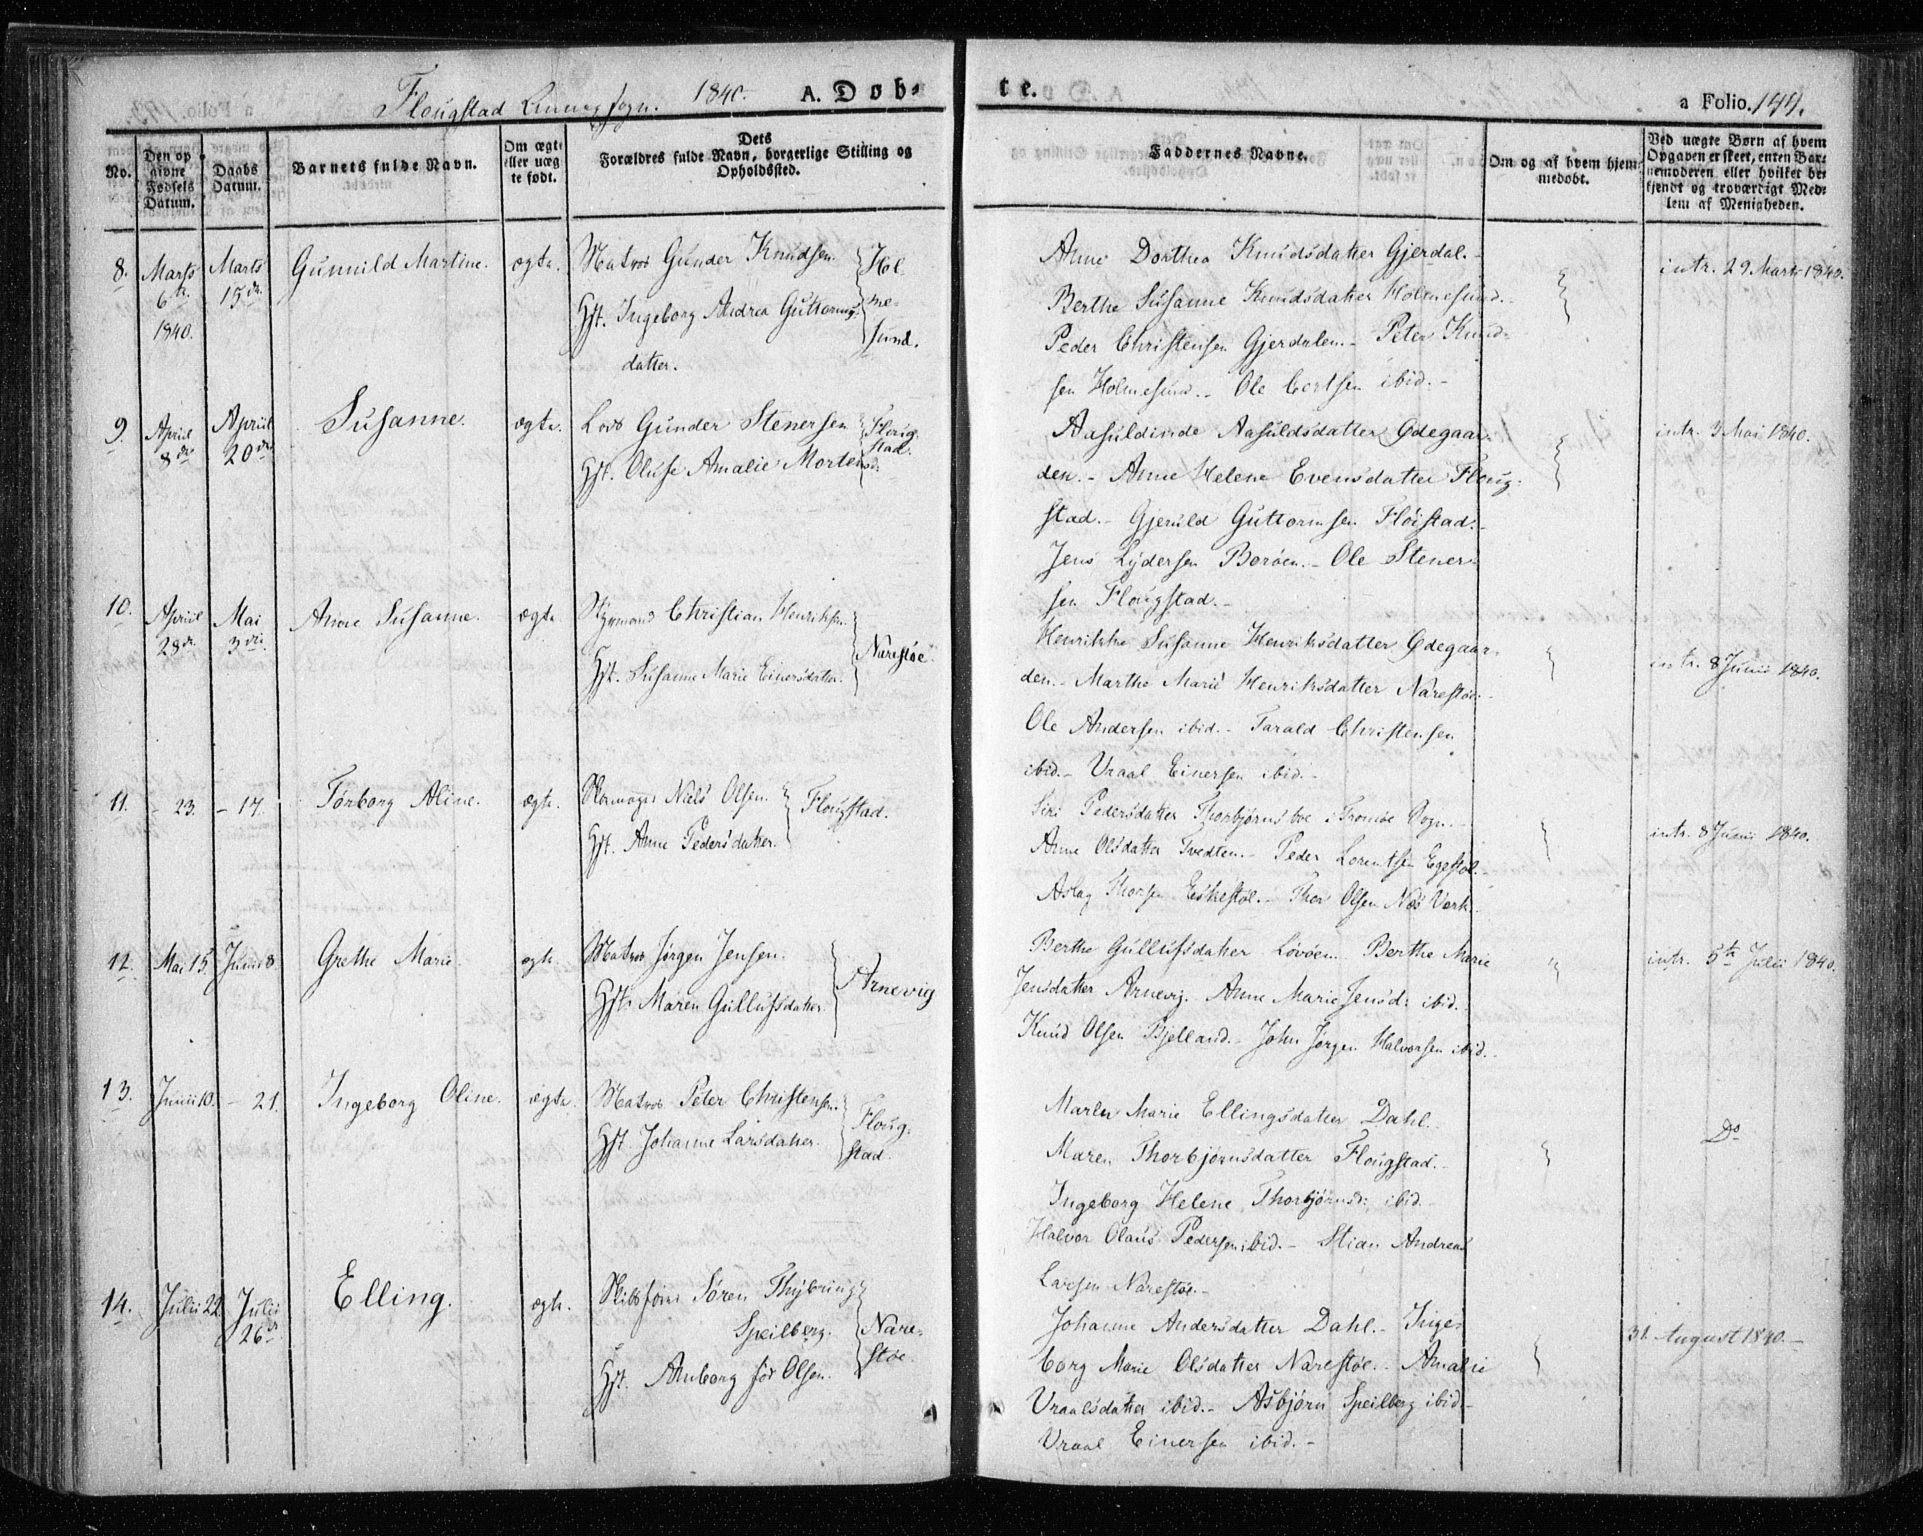 Flougstad sogn. 1840. A. Døb-
te. a Folio. 144.
No.
Den op
givne
Fødsels
Datum.
Daabs
Datum.
Barnets fulde Navn.
Om ægte
eller uæg
te født.
Dets
Forældres fulde Navn, borgerlige Stilling og
Opholdssted.
Faddernes Navne.
Om og af hvem hjem
medøbt.
Ved uægte Børn af hvem
Opgaven er skeet, enten Bar-
nemoderen eller hvilket be-
kjendt og troværdigt Med-
lem af Menigheden.
8.
Marts
6te
1840.
Marts
15de
Gunnild Martine.
ægte.
Matros Gunder Knudsen
Hst. Ingeborg Andrea Guttorms-
datter.
Hol-
me-
sund.
Anne Dorthea Knudsdatter Gjerdal.-
Berthe Susanne Knudsdatter Holmesund.-
Peder Christensen Gjerdalen.- Peter Knud-
sen Holmesund.- Ole Cortsen ibid.-
"
intr. 29 Marts 1840.
9.
April
8de
April
20de
Susanne.
ægte.
Lods Gunder Stenersen
Hst. Oluse Amalie Mortensd:
Floug-
stad.
Aasuldinde Aasuldsdatter Ødegaar-
den.- Anne Helene Evensdatter Floug-
stad.- Gjeruld Guttormsen Fløistad.-
Jens Lydersen Borøen.- Ole Stener-
sen Flougstad.-
"
intr. 3 Mai 1840.
10.
April
28de
Mai
3die
Anne Susanne.
ægte.
Styrmand Christian Henriksen.
Hst. Susanne Marie Einersdatter.
Narestøe.
Henrikke Susanne Henriksdatter Ødegaar-
den.- Marthe Marie Henriksdatter Narestøe.-
Ole Andersen ibid.- Tarald Christensen
ibid.- Vraal Einersen ibid.-
"
intr. 8 Junii 1840.
11.
- 23.
- 17.
Torborg Aline.
ægte.
Skomager Niels Olsen.
Hst. Anne Pedersdatter.
Flougstad.
Siri Pedersdatter Thorbjørnsboe i Tromøe Sogn.-
Anne Olsdatter Tvedten.- Peder Lorentsen Egestøl.
Aslag Thorsen Eskestøl.- Thor Olsen Næs Værk.
"
intr. 8 Junii 1840.
12.
Mai 15.
Junii 8.
Grethe Marie.
ægte.
Matros Jørgen Jensen.
Hst. Maren Gullufsdatter.
Arnevig
Berthe Gullufsdatter Lovøen. Berthe Marie
Jensdatter Arnevig. Anne Marie Jensd: ibid.
Knud Olsen Bjelland.- John Jørgen Halvorsen ibid.-
"
intr. 5te Julii 1840.
13.
Junii 10.
- 21.
Ingeborg Oline.
ægte.
Matros Peter Christensen.
Hst. Johanne Larsdatter.
Floug-
stad.
Marie Ellingsdatter Dahl.
Maren Thorbjørnsdatter Flougstad.-
Ingeborg Helene Thorbjørnsd: ibid.-
Halvor Olaus Pedersen ibid.- Stian Andreas
Larsen Narestøe.-
"
Do
14.
Julii 22.
Julii
26de
Elling.
ægte.
Skibsfører Søren Thybring
Speilberg.
Hst. Anborg fød Olsen.
Nare-
støe.
Johanne Andersdatter Dahl.- Inge-
borg Marie Olsdatter Narestøe.- Amalie
Vraalsdatter ibid.- Asbjørn Speilberg ibid.-
Vraal Einersen ibid.-
"
31. August 1840.-